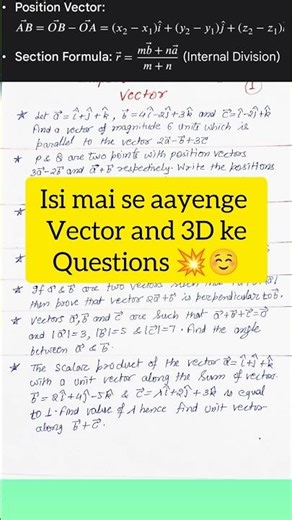 • Position Vector:
A⃗B = O⃗B − O⃗A = (x₂ − x₁)î + (y₂ − y₁)ĵ + (z₂ − z₁)
• Section Formula: r⃗ = (mb⃗ + na⃗)/(m + n) (Internal Division)
Vector
①
* Let a⃗ = î+ĵ+k̂, b⃗ = 4î-2ĵ+3k̂ and c⃗=î-2ĵ+k̂
Find a vector of magnitude 6 units which is
parallel to the vector 2a⃗-b⃗+3c⃗
* P & Q are two points with position vectors
3a⃗-2b⃗ and a⃗+b⃗ respectively. Write the positions
Isi mai se aayenge
Vector and 3D ke
Questions 💥☺️
* If a⃗ & b⃗ are two vectors such that
then prove that vector 2a⃗+b⃗ is perpendicular to b⃗.
* Vectors a⃗, b⃗ and c⃗ are such that a⃗+b⃗+c⃗=0⃗
and |a⃗|=3, |b⃗|=5 and |c⃗|=7. Find the angle
between a⃗ & b⃗.
* The scalar product of the vector a⃗=î+ĵ+k̂
with a unit vector along the sum of vectors
b⃗=2î+4ĵ-5k̂ & c⃗=λî+2ĵ+3k̂ is equal
to 1. Find value of λ hence find unit vector
along b⃗+c⃗.